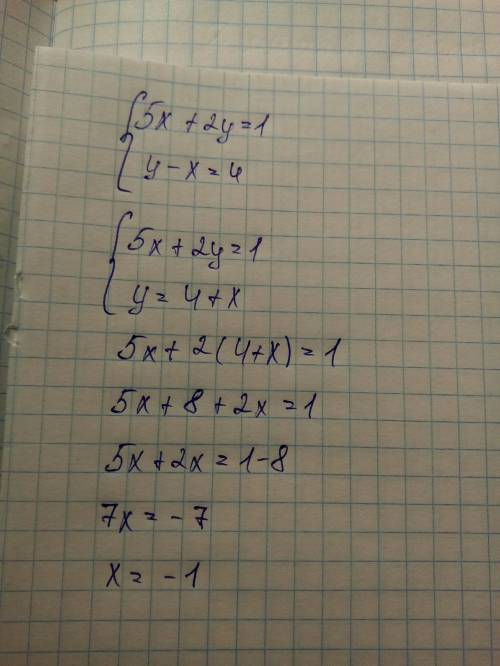 5x + 2y = 1
y - x = 4
5x + 2y = 1
y = 4 + x
5x + 2(4+x) = 1
5x + 8 + 2x = 1
5x + 2x = 1 - 8
7x = - 7
x = - 1